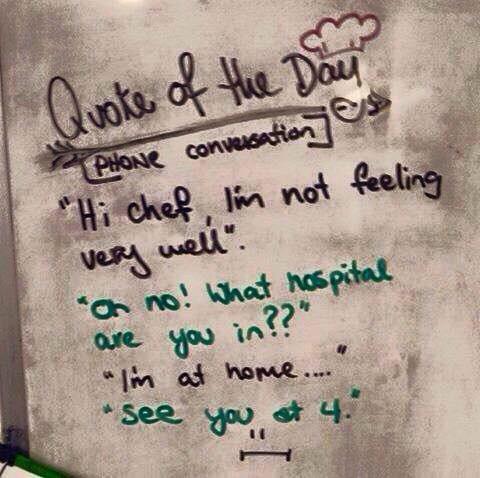 Quote of the Day
[PHONE conversation]
"Hi chef, I'm not feeling
very well".
"Oh no! What hospital
are you in??"
"I'm at home...."
"See you at 4."